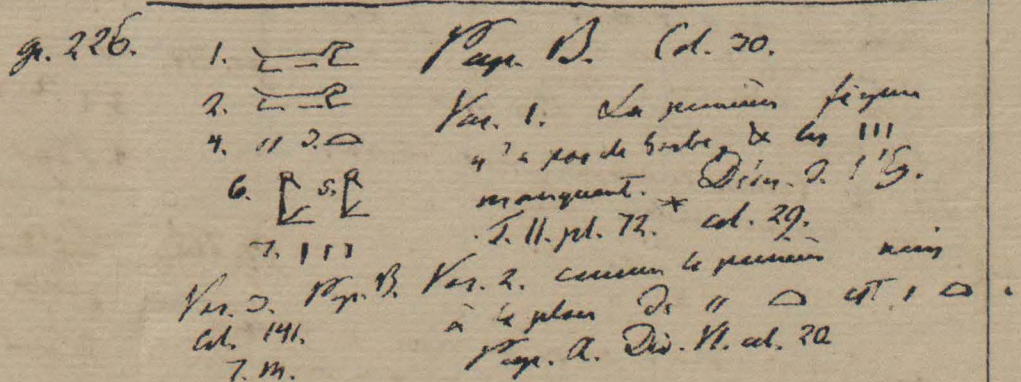 gr. 226.
1.
2.
4. 11 3.
6. 5.
7. 111
Var. 3. Pap. B.
Col. 141.
7. m.
Pap. B. Col. 30.
Var. 1. La première figure
n'a pas de barbe, & les III
manquent. Descr. d. l'Eg.
T. II. pl. 72.* col. 29.
Var. 2. comme la première mais
à la place de 11 est 1
Pap. A. Div. VI. col. 20